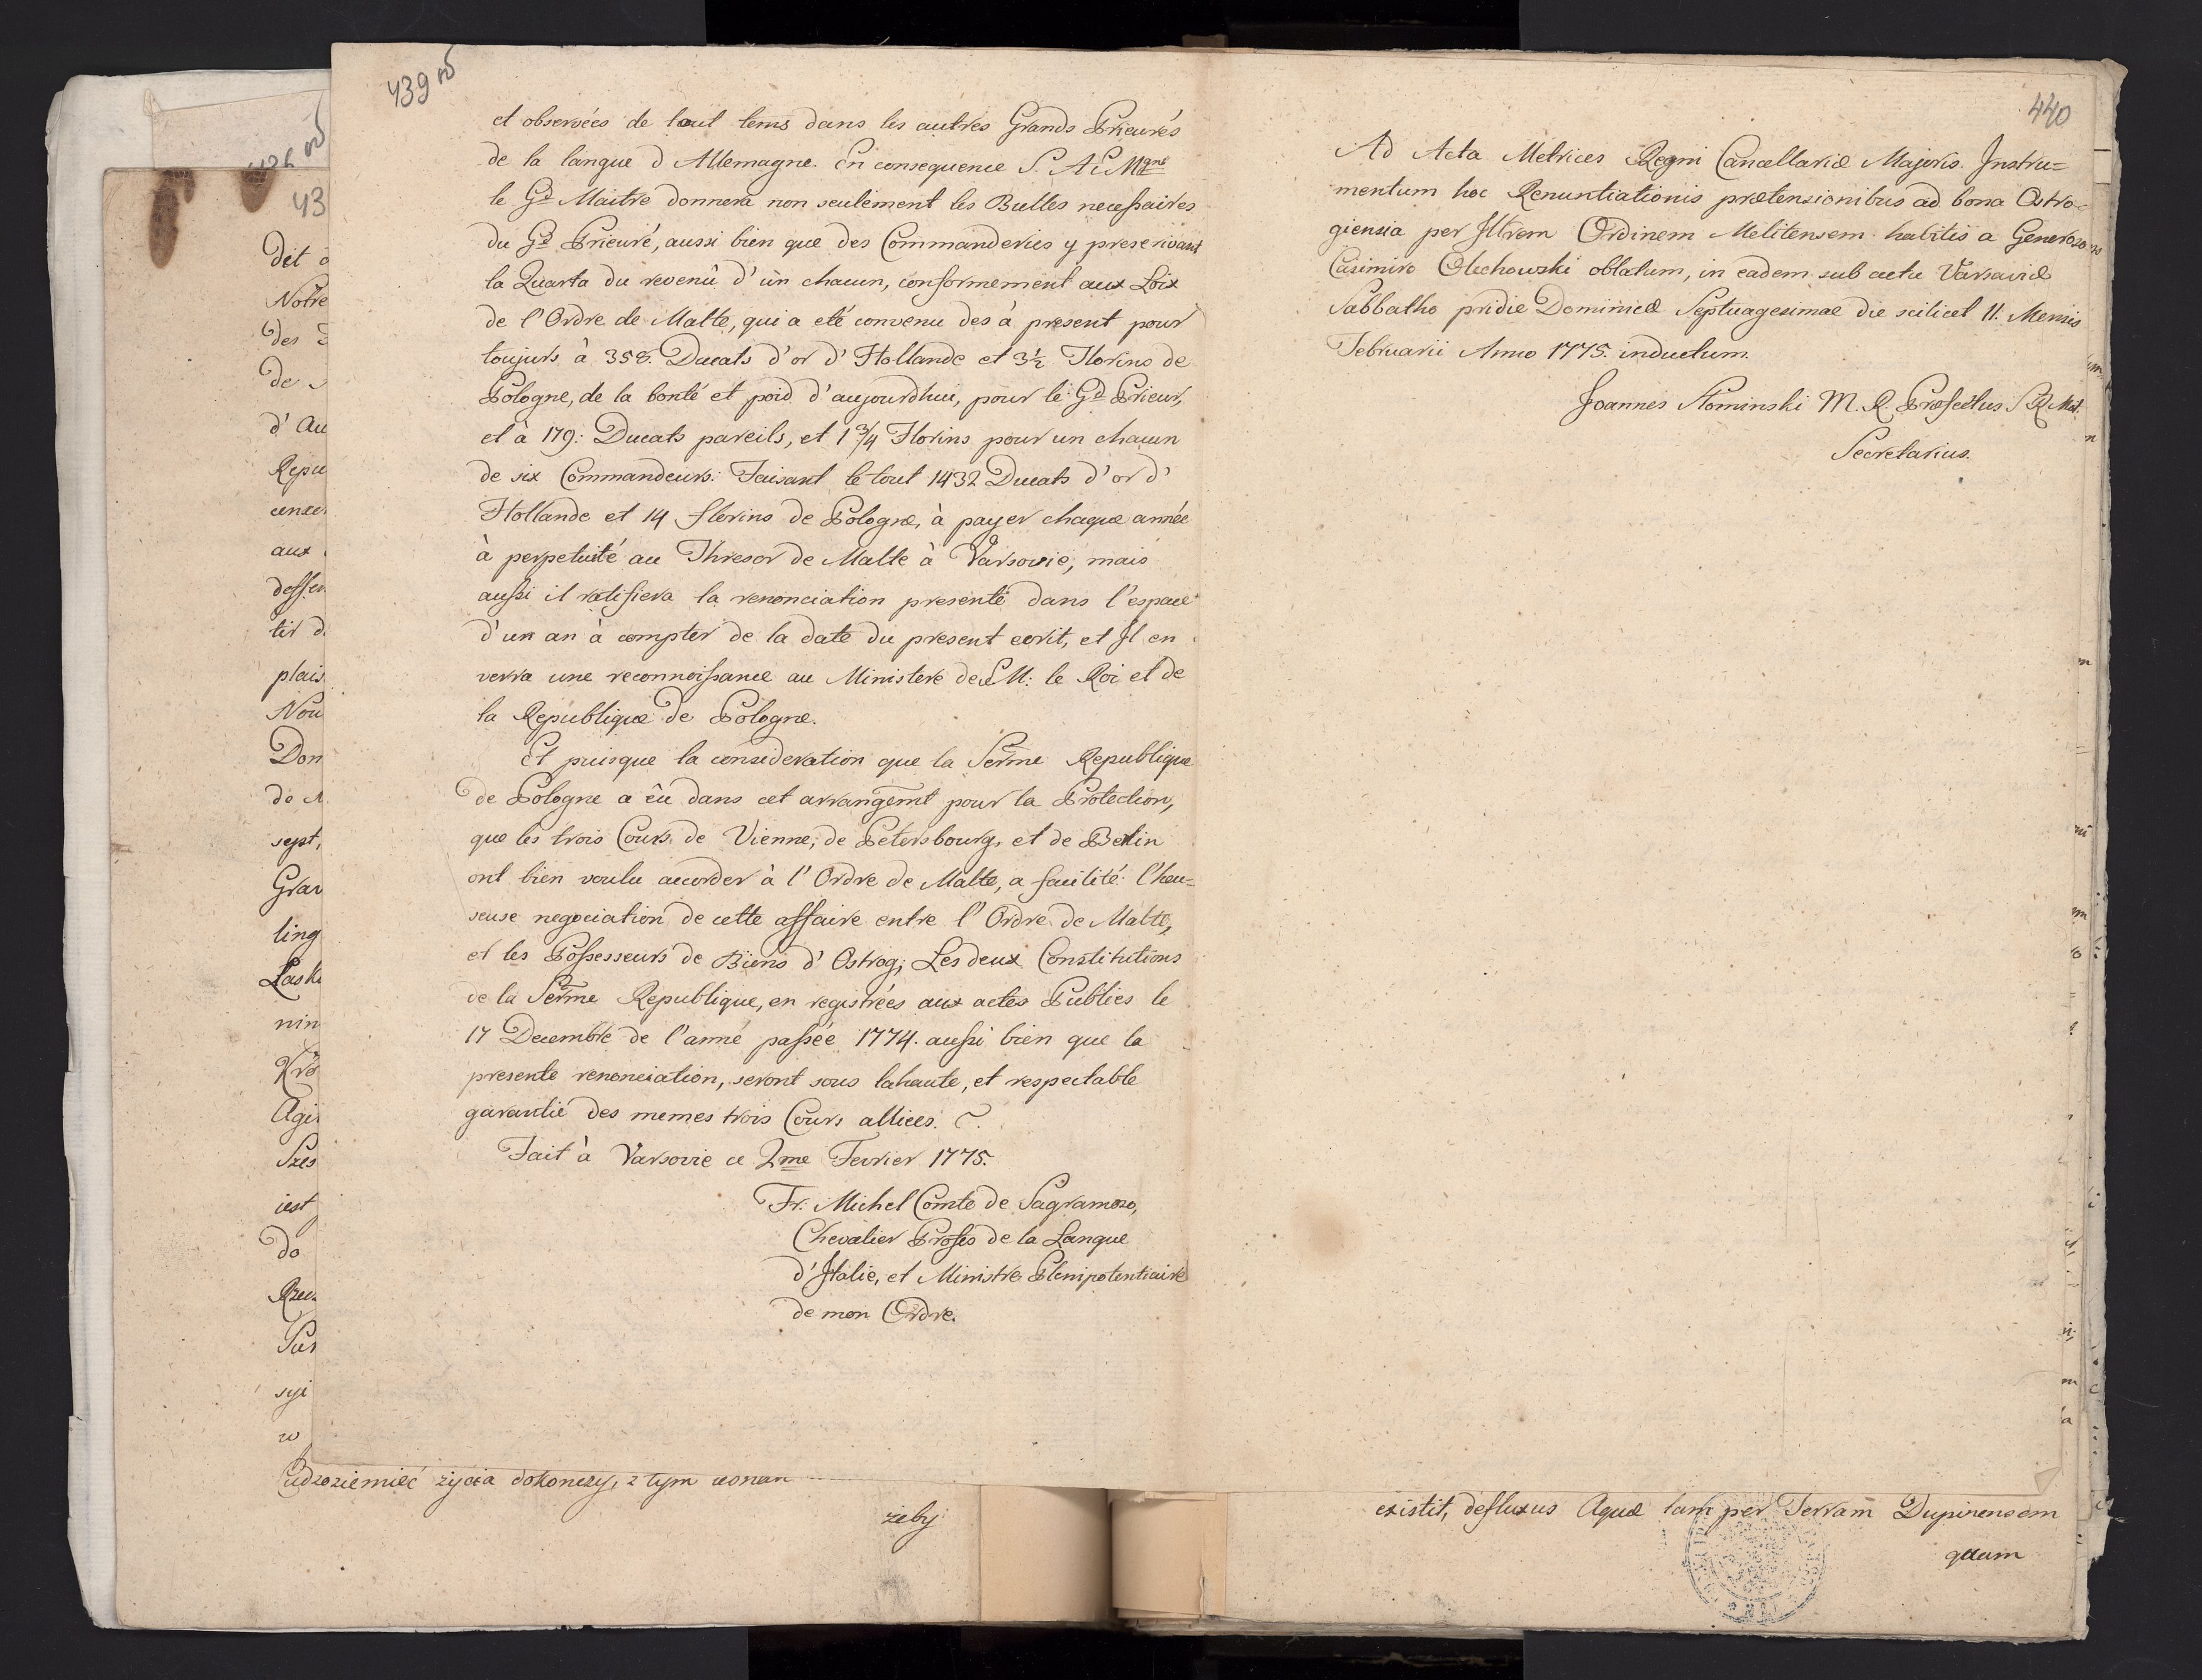 439 vo
et observées de tout tems dans les autres Grands Prieurés
de la langue d'Allemagne. En consequence S. A. E. Mgne
le Gd Maitre donnera non seulement les Bulles necessaires
du Gd Prieuré, aussi bien que des Commanderies y prescrivant
la Quarta du revenû d'ún chacun, conformement aux Loix
de l'Ordre de Malte, qui a eté convenu des à present pour
toujurs à 358. Ducats d'or d'Hollande et 3½ Florins de
Pologne, de la bonté et poid d'aujourdhui, pour le Gd Prieur,
et à 179: Ducats pareils, et 1¾ Florins pour un chacun
de six Commandeurs: Faisant le tout 1432 Ducats d'or d'
Hollande et 14 florins de Pologne, à payer chaque année
à perpetuité au Thresor de Malte à Varsovie, mais
aussi il ratifiera la renonciation presente dans l'espace
d'un an à compter de la date du present ecrit, et Il en
verra une reconnoissance au Ministere de S M: le Roi et de
la Republique de Pologne.
Et puisque la consideration que la Serme Republique
de Pologne a êu dans cet arrangemt pour la Protection,
que les trois Cours de Vienne, de Petersbourg, et de Berlin
ont bien voulu accorder à l'Ordre de Malte, a facilité l'heu=
seuse negociation de cette affaire entre l'Ordre de Malte,
et les Possesseurs de Biens d'Ostrog; Les deux Constitutions
de la Serme Republique, en registrées aux actes Publics le
17 Decembre de l'anné passée 1774. aussi bien que la
presente renonciation, seront sous la haute, et respectable
garantie des memes trois Cours alliees.
Fait à Varsovie ce 2me Fevrier 1775.
Fr. Michel Comte de Sagramoso,
Chevalier Profes de la Langue
d'Italie, et Ministre Plenipotentiaire
de mon Ordre.
43
dit
Notre
des
de
d'Au
Repu
aux
tir d
plais
Nou
Don
de
sept,
Gran
ling
Lask
nin
Kró
Agi
Szes
iest
do
Rzec
syi
w
Cudzoziemiec życia dokończy, z tym
żeby
440
Ad Acta Metrices Regni Cancellariæ Majoris Instru=
mentum hoc Renuntiationis prætensionibus ad bona Ostro=
giensia per Illtrem Ordinem Melitensem habitis a Generoso
Casimiro Olechowski oblatum, in eadem sub actu Varsaviæ
Sabbatho pridie Dominicæ Septuagesimae die scilicet 11. Mensis
Februarii Anno 1775. inductum.
Joannes Słominski M. R. Præfectus S R Mst.
Secretarius.
existit, defluxus Aquæ tam per Terram Dupinensem
quam